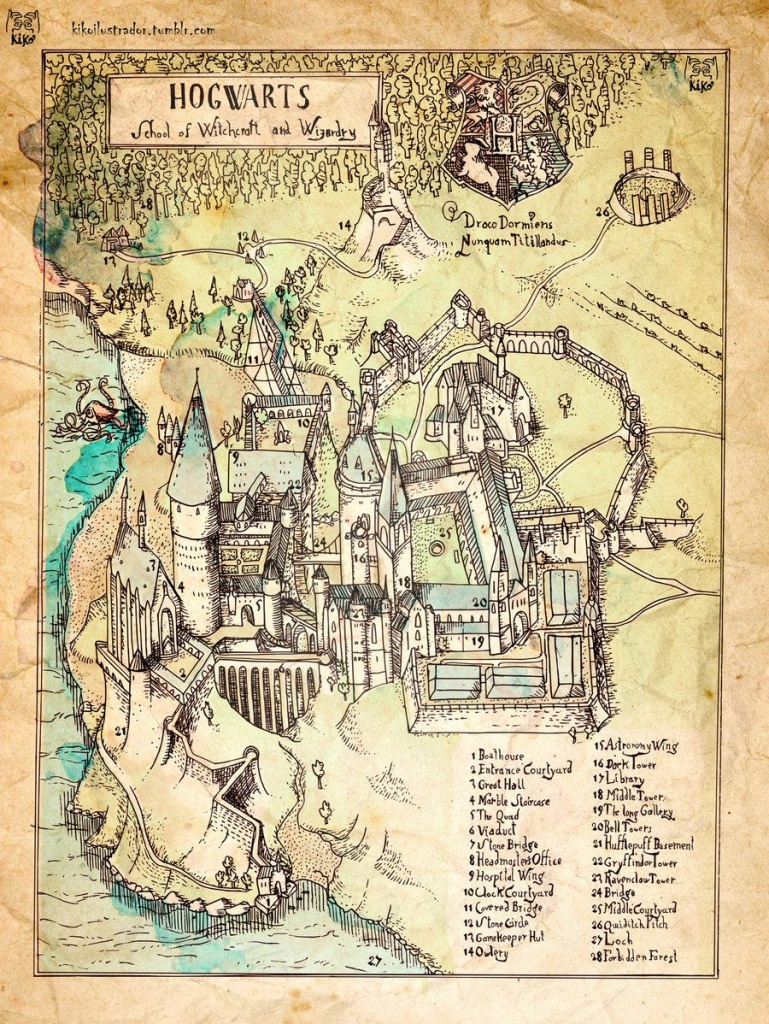 KiKo
kikoilustrador.tumblr.com
KiKo
HOGWARTS
School of Witchcraft and Wizardry
Draco Dormiens
Nunquam Titillandus
28
13
12
14
26
11
10
17
8
9
22
15
25
3
4
5
24
16
18
20
19
2
23
21
27
1 Boathouse
2 Entrance Courtyard
3 Great Hall
4 Marble Staircase
5 The Quad
6 Viaduct
7 Stone Bridge
8 Headmasters Office
9 Hospital Wing
10 Clock Courtyard
11 Covered Bridge
12 Stone Circle
13 Gamekeeper Hut
14 Owlery
15 Astronomy Wing
16 Dark Tower
17 Library
18 Middle Tower
19 The long Gallery
20 Bell Towers
21 Hufflepuff Basement
22 Gryffindor Tower
23 Ravenclaw Tower
24 Bridge
25 Middle Courtyard
26 Quiditch Pitch
27 Loch
28 Forbidden Forest